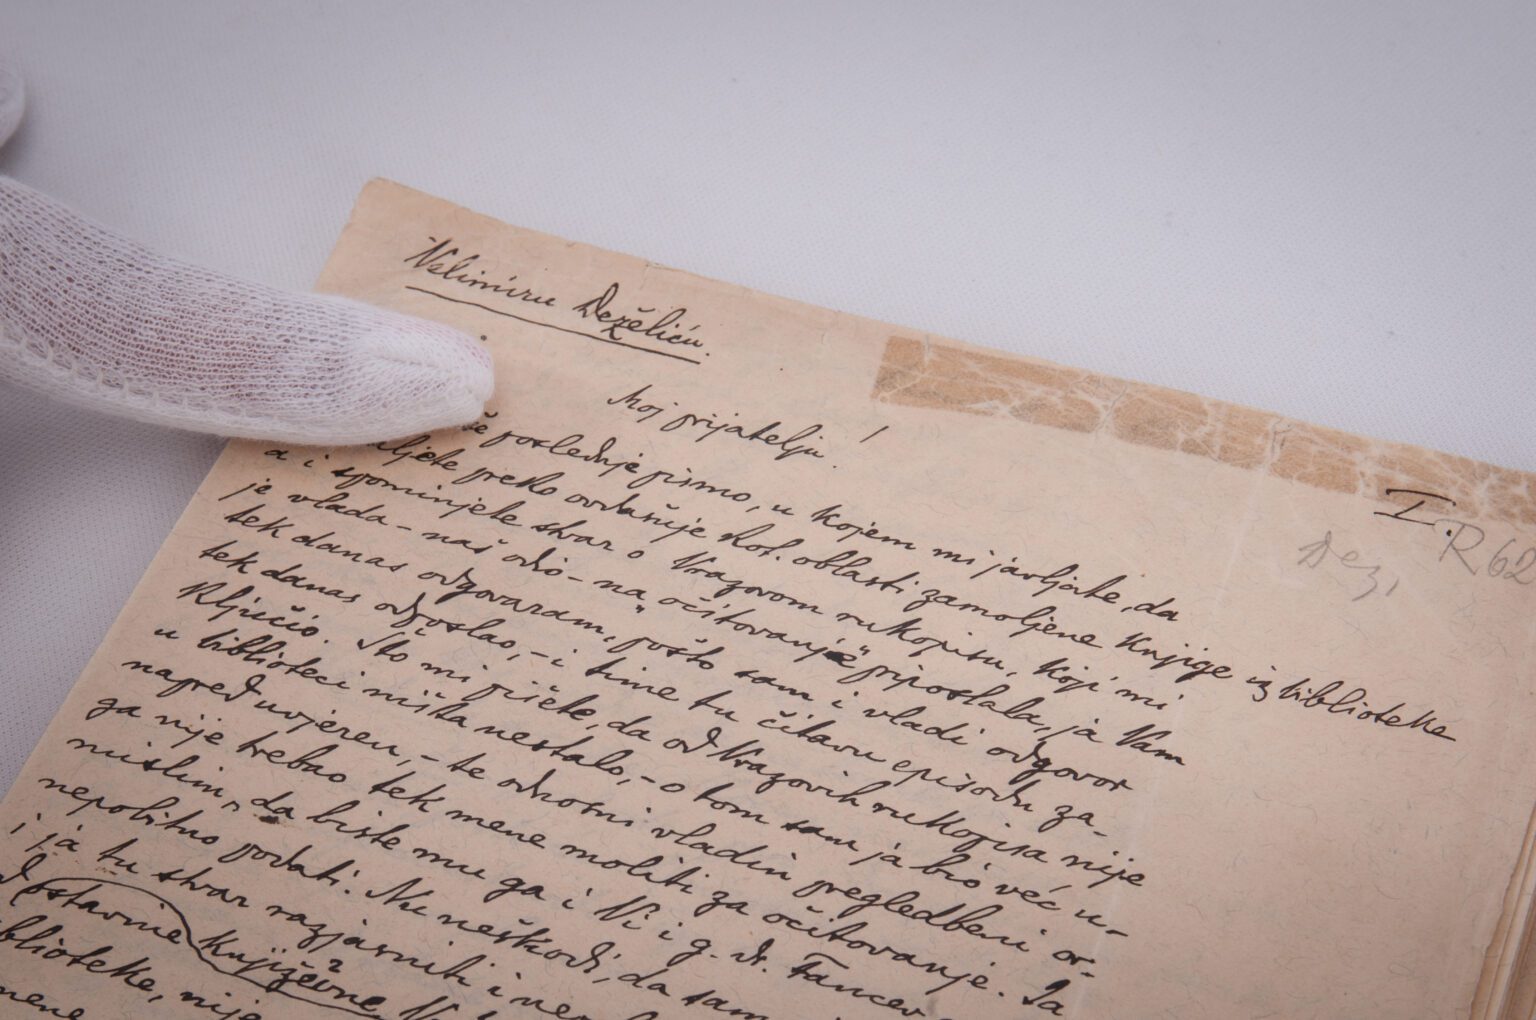 Velimiru Deželiću.
Moj prijatelju!
I.
R 62
Dez,
poslednje pismo, u kojem mi javljate, da
preko ovdašnje kot. oblasti zamoljene knjige iz biblioteke
a i spominjete stvar o Vrazovom rukopisu, koji mi
je vlada – naš odio – na „očitovanje“ priposlala, ja Vam
tek danas odgovaram, pošto sam i vladi odgovor
tek danas odposlao, – i time tu čitavu episodu za-
ključio. Što mi pišete, da od Vrazovih rukopisa nije
u biblioteci ništa nestalo, – o tom sam ja bio već u-
napred uvjeren, – te odnosni vladin pregledbeni or-
gan nije trebao tek mene moliti za očitovanje. Ja
mislim, da biste mu ga i Vi i g. dr. Fancev
nepobitno podati. No neškodi, da sam
i ja tu stvar razjasnio i
Dostavnie književne
biblioteke, nije
mene